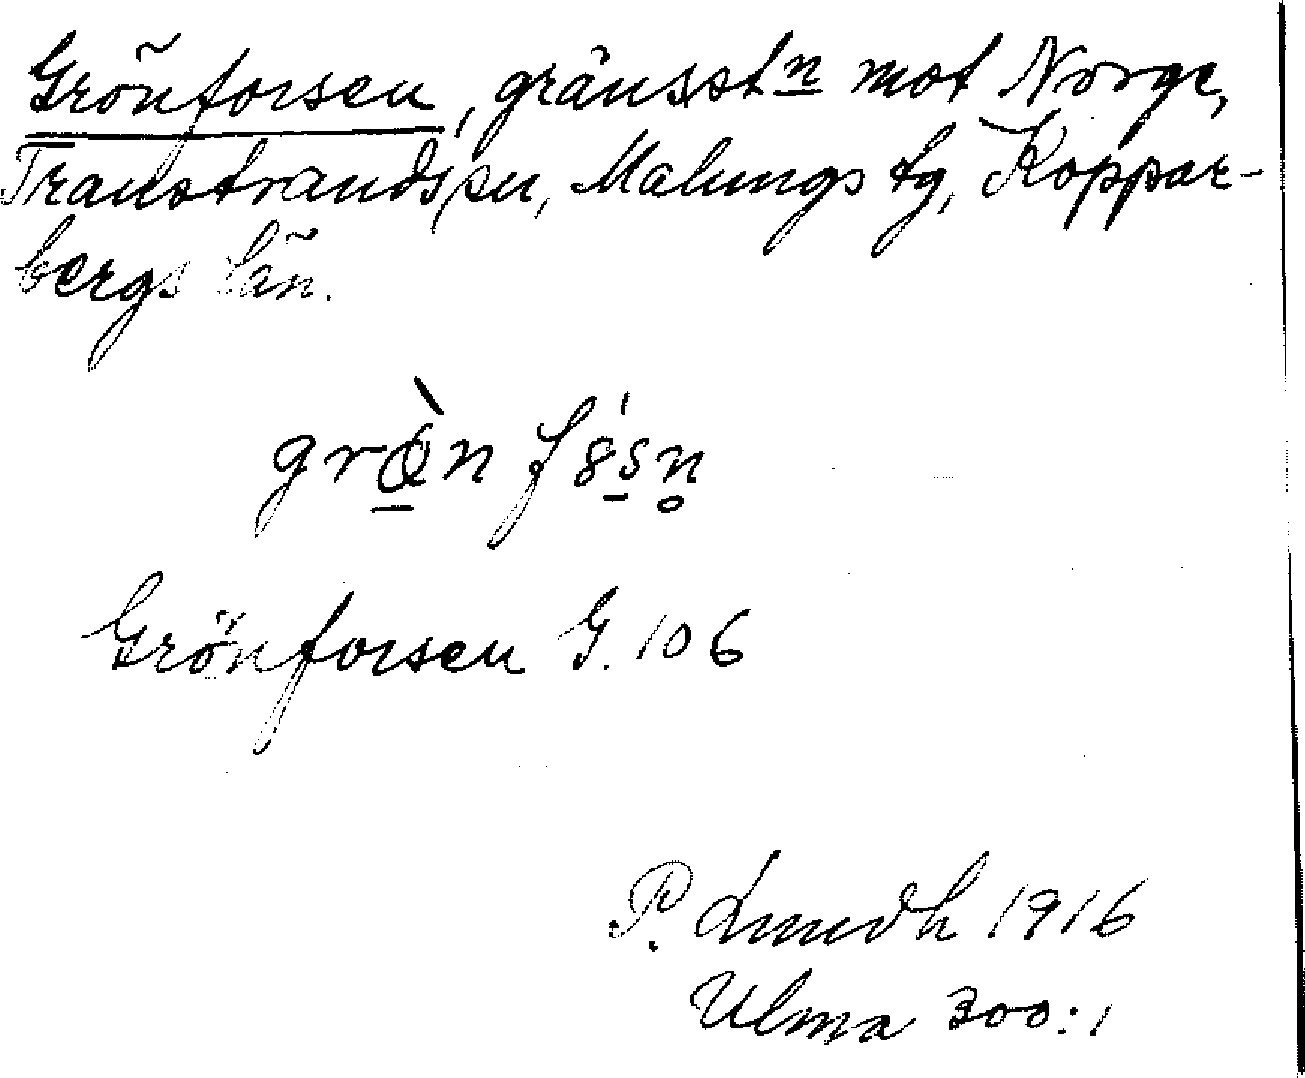 Grönforsen, gränsstn mot Norge,
Transtrands sn, Malungs tg, Koppar-
bergs län.
grø̠̀n fȣ́s̠n̥
Grönforsen G. 106
P. Lundh 1916
Ulma 300:1